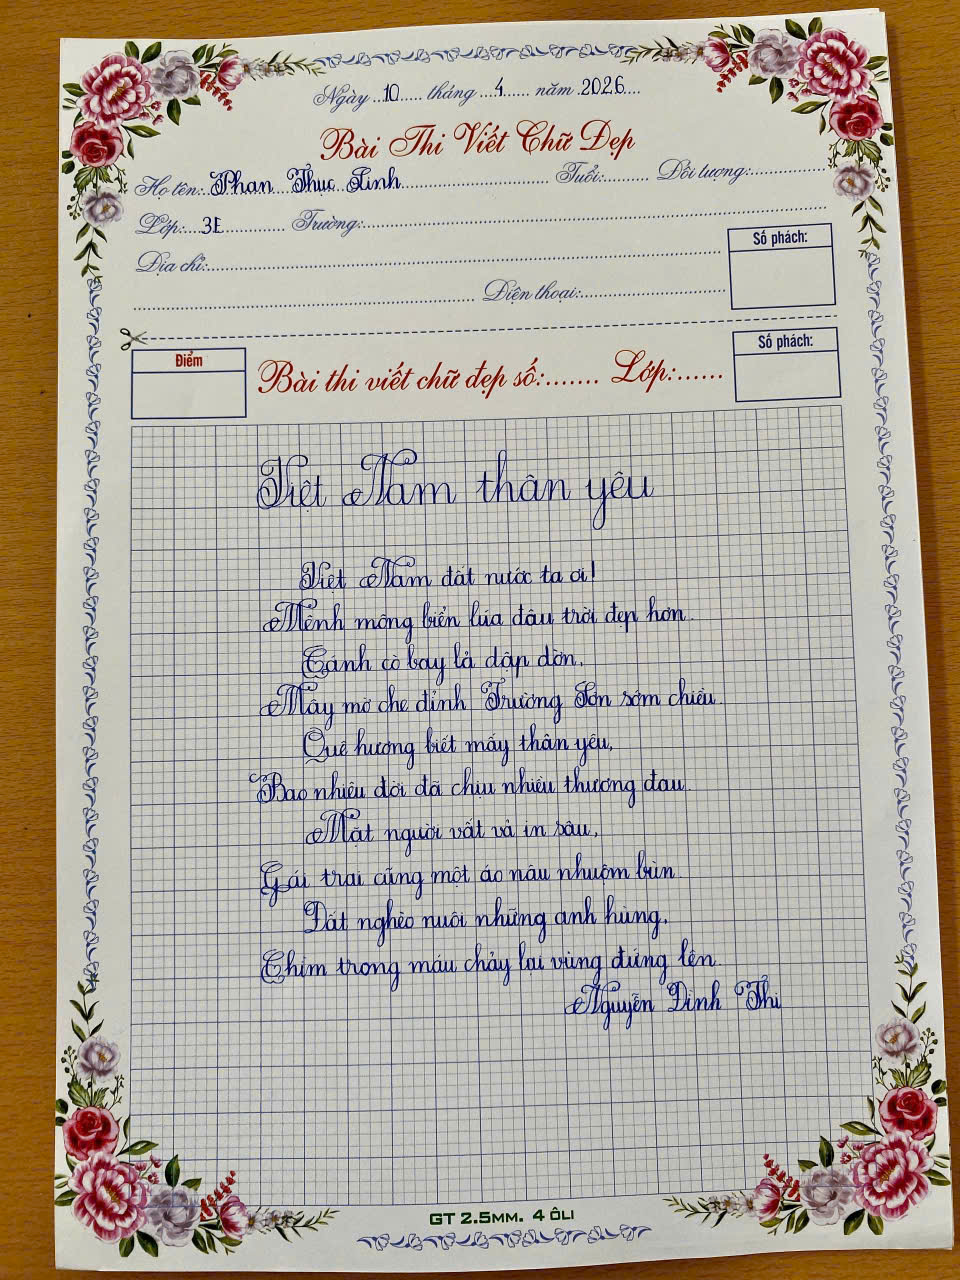 Ngày 10 tháng 4 năm 2026
Bài Thi Viết Chữ Đẹp
Họ tên: Phan Thục Linh Tuổi: Đối tượng:
Lớp: 3E Trường:
Địa chỉ:
Điện thoại:
Số phách:
Điểm
Bài thi viết chữ đẹp số: Lớp:
Số phách:
Việt Nam thân yêu
Việt Nam đất nước ta ơi!
Mênh mông biển lúa đâu trời đẹp hơn.
Cánh cò bay lả dập dờn,
Mây mờ che đỉnh Trường Sơn sớm chiều.
Quê hương biết mấy thân yêu,
Bao nhiêu đời đã chịu nhiều thương đau.
Mặt người vất vả in sâu,
Gái trai cũng một áo nâu nhuộm bùn.
Đất nghèo nuôi những anh hùng,
Chìm trong máu chảy lại vùng đứng lên.
Nguyễn Đình Thi
GT 2.5MM. 4 ÔLI